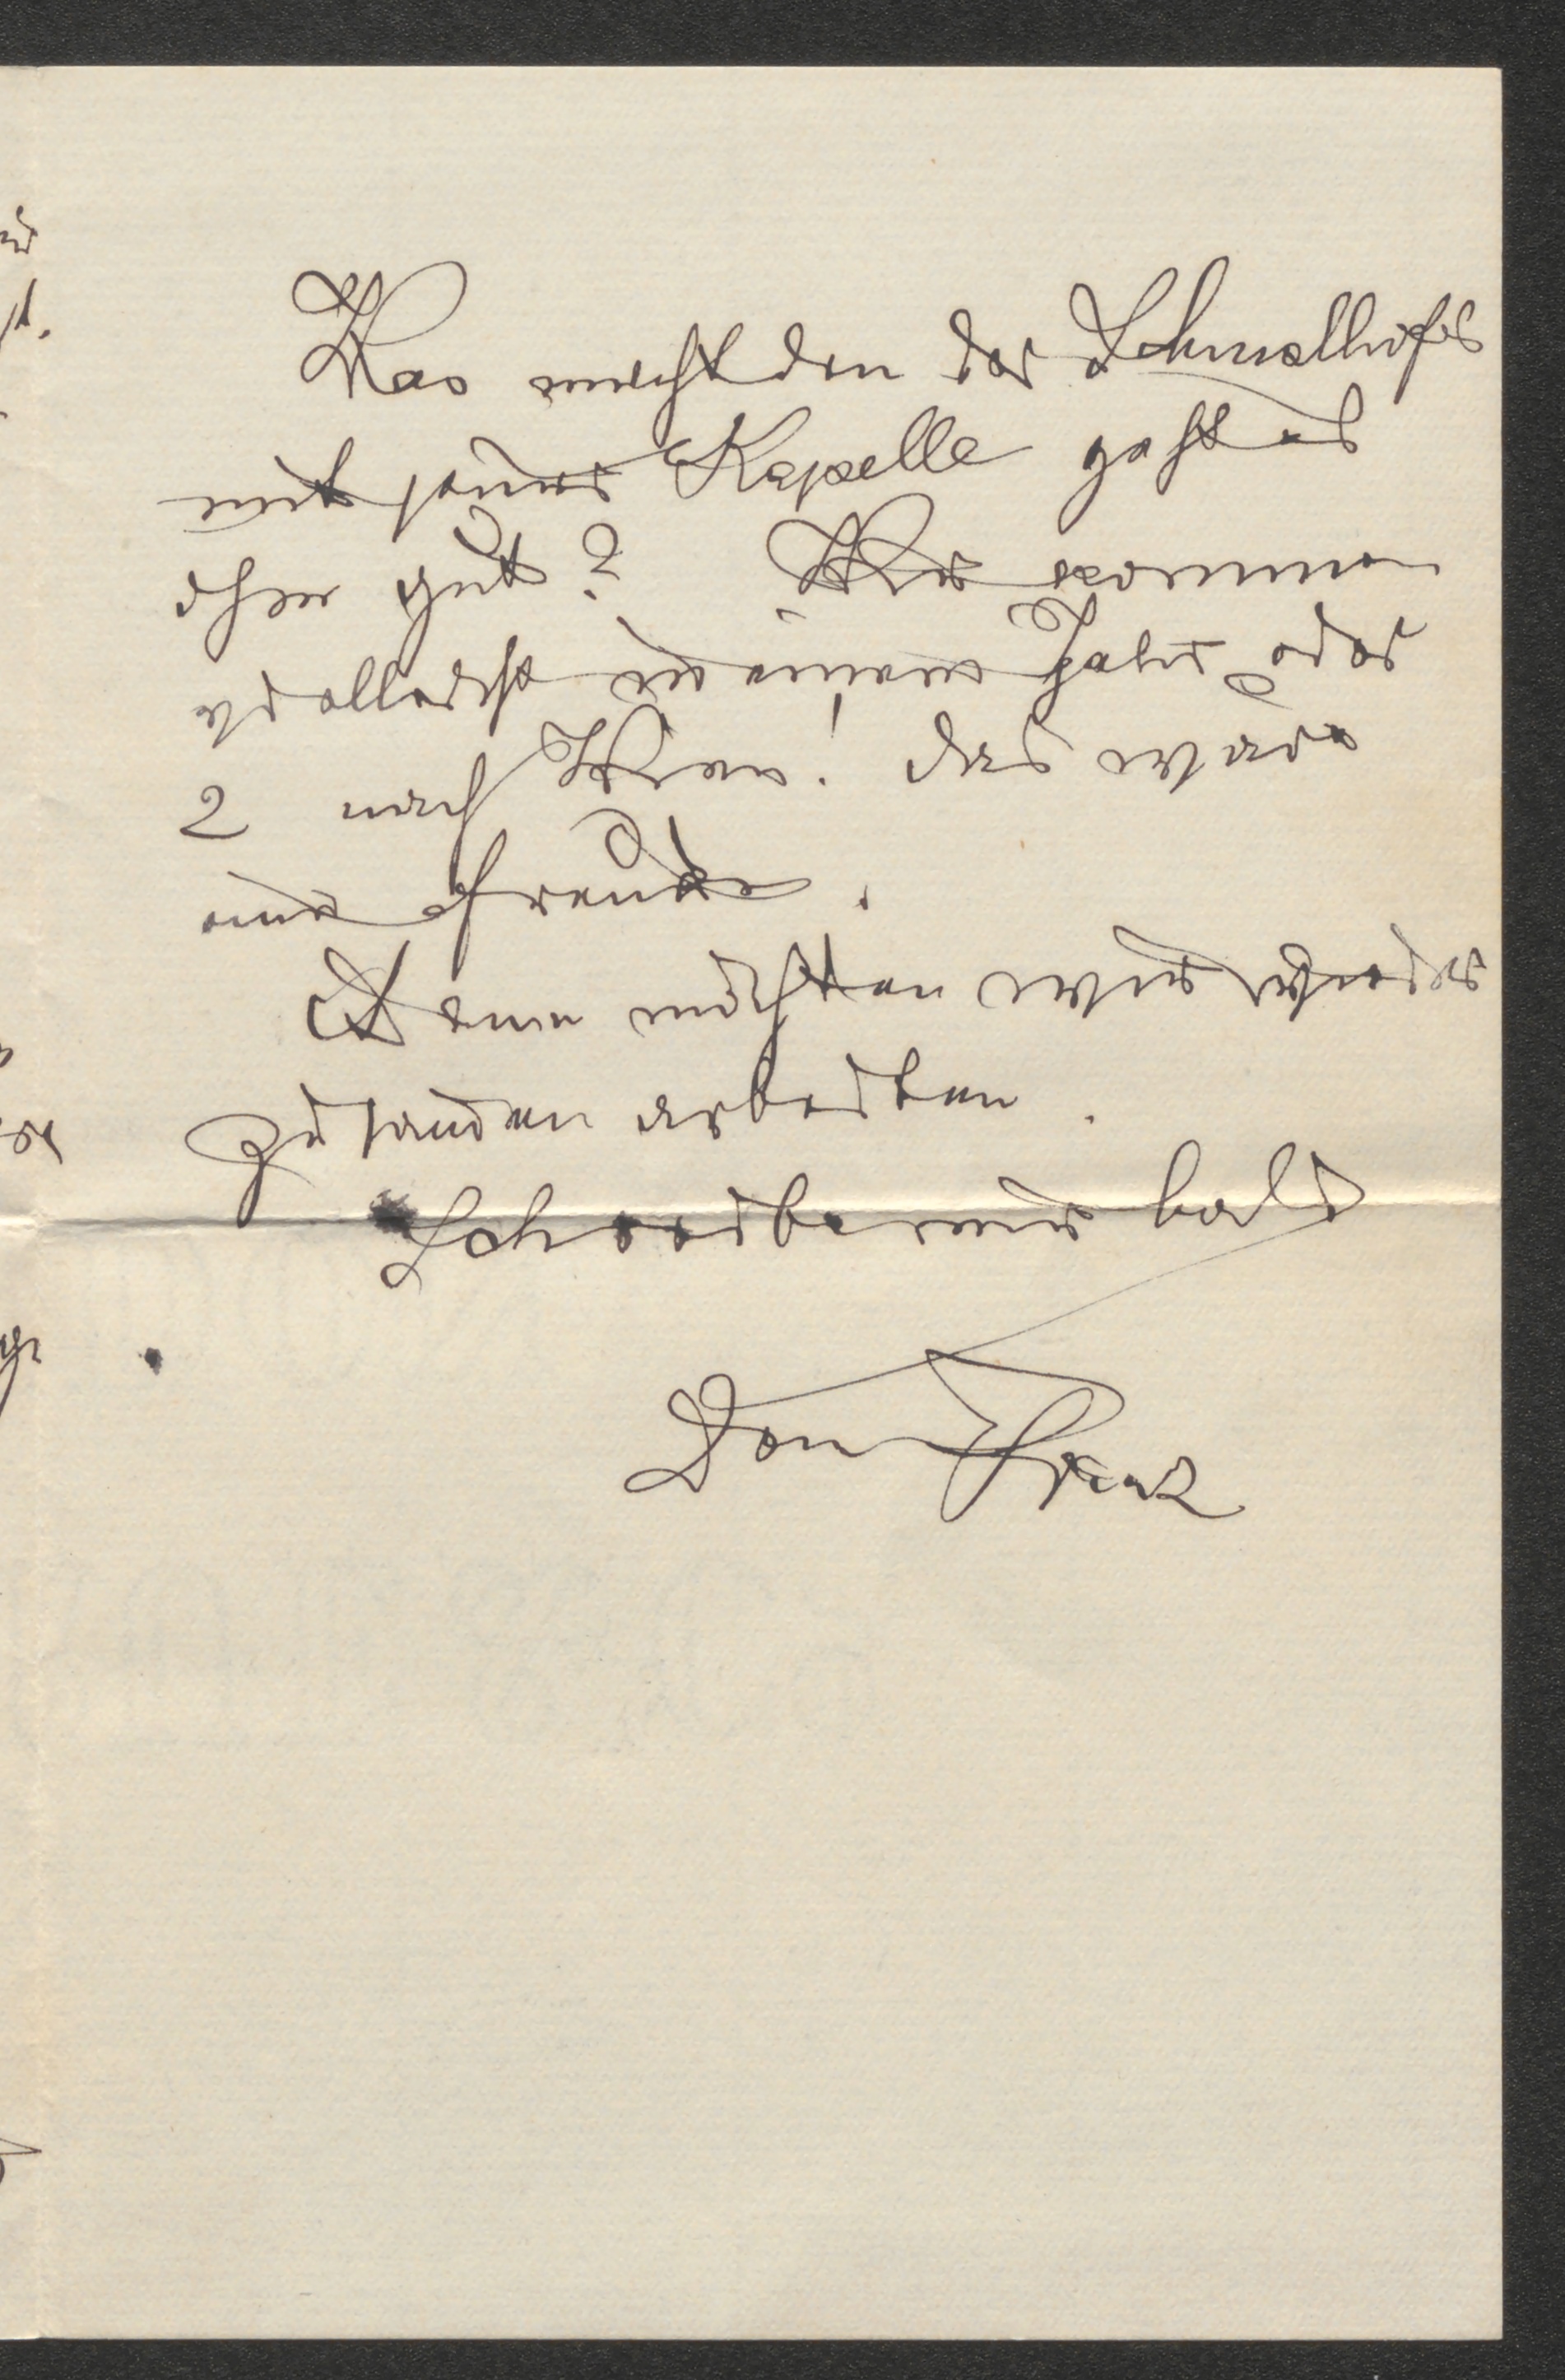 Was macht den der Schmalhofer
mit seiner Kapelle geht es
ihm gut? Wir kommen
vielleicht in einem Jahr oder
2 nach Wien! das wäre
eine Freude.
Dann möchten wir wieder
zusammen arbeiten.
Schreibe mir bald
Dein Franz